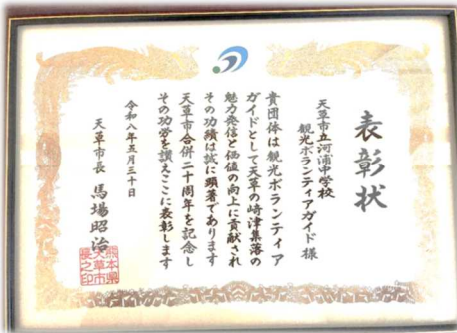 表彰状
天草市立河浦中学校
観光ボランティアガイド 様
貴団体は観光ボランティア
ガイドとして天草の﨑津集落の
魅力発信と価値の向上に貢献され
その功績は誠に顕著であります
天草市合併二十周年を記念し
その功労を讃えここに表彰します
令和八年五月三十日
天草市長 馬場昭治
熊本県
天草市
長之印